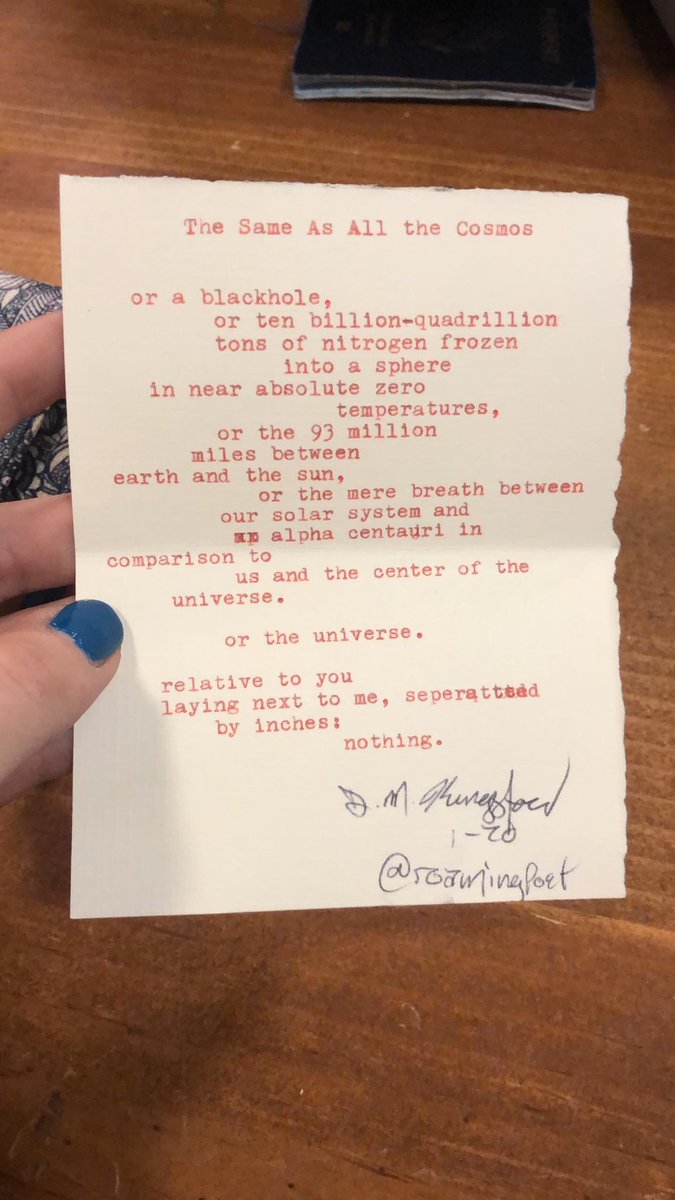 The Same As All the Cosmos
or a blackhole,
or ten billion-quadrillion
tons of nitrogen frozen
into a sphere
in near absolute zero
temperatures,
or the 93 million
miles between
earth and the sun,
or the mere breath between
our solar system and
alpha centauri in
comparison to
us and the center of the
universe.
or the universe.
relative to you
laying next to me, seperatted
by inches:
nothing.
D.M. Kingsford
1-20
@roamingpoet